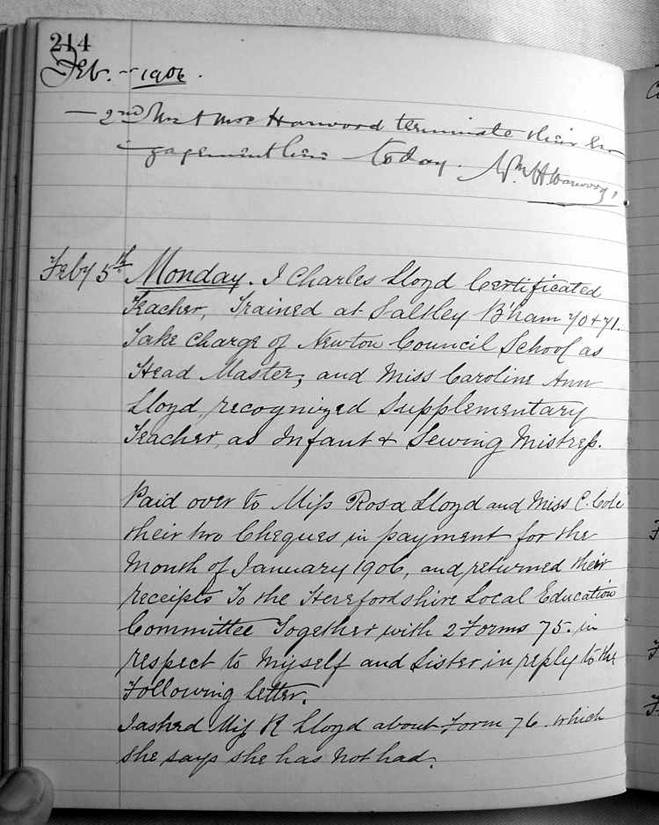 214
Feb. - 1906.
— 2nd Mr & Mrs Harwood terminate their en
gagement here today. Wm H Harwood,
Feby 5th Monday. I Charles Lloyd Certificated
Teacher, Trained at Saltley B'ham 70 + 71.
Take Charge of Newton Council School as
Head Master, and Miss Caroline Ann
Lloyd recognized Supplementary
Teacher, as Infant & Sewing Mistress.
Paid over to Miss Rosa Lloyd and Miss C. Cole
their two Cheques in payment for the
Month of January 1906, and returned their
receipts To the Herefordshire Local Education
Committee Together with 2 Forms 75. in
respect to Myself and Sister in reply to the
Following letter.
I asked Miss R Lloyd about Form 76. which
she says she has not had.